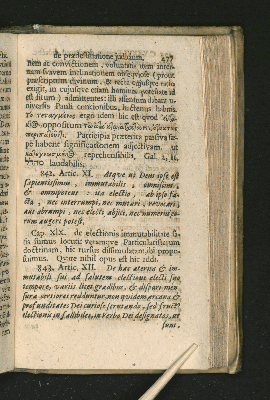 de prædestinatione judicium. 477
nem ac convictionem, voluntatis item inter-
nam suavem inclinationem obsequiose (prout
præscriptum divinum, & recta cujusque ratio
exigit, in cujusque etiam hominis potestate id
est situm) admittentes: illi assensum dabant u-
niversis Pauli concionibus, luctenus habitis.
Τὸ τεταγμένος ergo idem hic est quod
oppositum
Participia præterea passiva sæ-
pe habent significationem adjectivam, ut
κατεγνωσμένος reprehensibilis, Gal. 2, 11.
laudabilis.
842. Artic. XI. Atque ut Deus ipse est
sapientissimus, immutabilis, omniscius,
& omnipotens: ita electio, ab ipso fa-
cta, nec interrumpi, nec mutari, revocari,
aut abrumpi, nec electi abjici, nec numerus eo-
rum augeri potest.
Cap. XIX. de electionis immutabilitate sa-
sis sumus locuti: veramque Particularistarum
doctrinam, hic rursus dissimulatam, ibi propo-
suimus. Quare nihil opus est hic addi.
843. Artic. XII. De hac æterna & im-
mutabili sui ad salutem electione electi suo
tempore, variis licet gradibus, & dispari men-
sura certiores redduntur, non quidem arcana &
profunditates Dei curiose scrutando; sed fructus
electionis infallibiles, in verbo Dei designatos, ut
sunt,